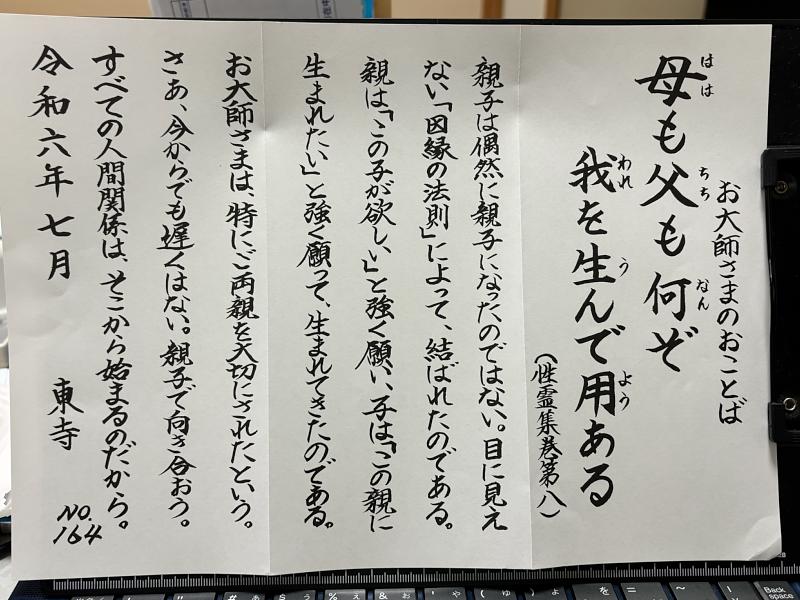 お大師さまのおことば
母も父も何ぞ
はは ちち なん
我を生んで用ある
われ う よう
(性霊集巻第八)
親子は偶然に親子になったのではない。目に見え
ない「因縁の法則」によって、結ばれたのである。
親は「この子が欲しい」と強く願い、子は「この親に
生まれたい」と強く願って、生まれてきたのである。
お大師さまは、特にご両親を大切にされたという。
さあ、今からでも遅くはない。親子で向き合おう。
すべての人間関係は、そこから始まるのだから。
令和六年七月 東寺
NO.164
Back space